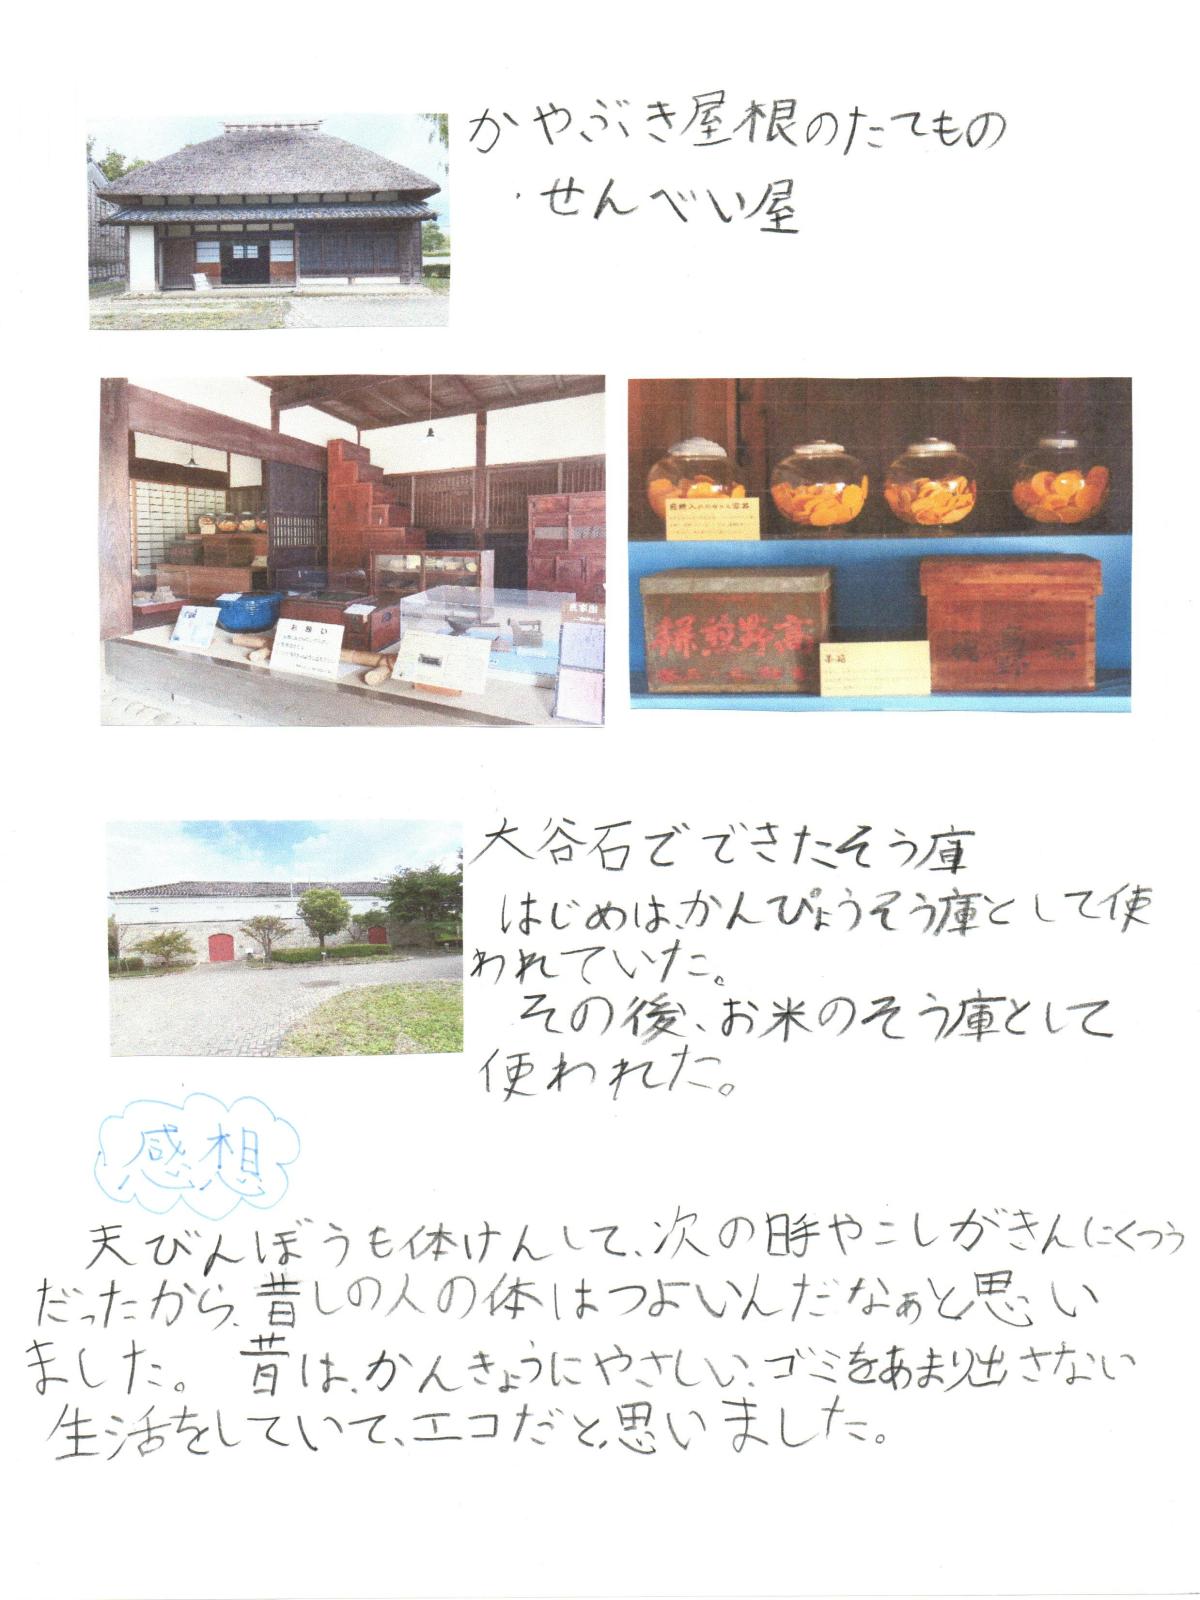 かやぶき屋根のたてもの
・せんべい屋
お願い
茶箱
大谷石でできたそう庫
はじめは、かんぴょうそう庫として使
われていた。
その後、お米のそう庫として
使われた。
感想
天びんぼうも体けんして、次の日手やこしがきんにくつう
だったから、昔しの人の体はつよいんだなぁと思い
ました。昔は、かんきょうにやさしい、ゴミをあまり出さない
生活をしていて、エコだと思いました。